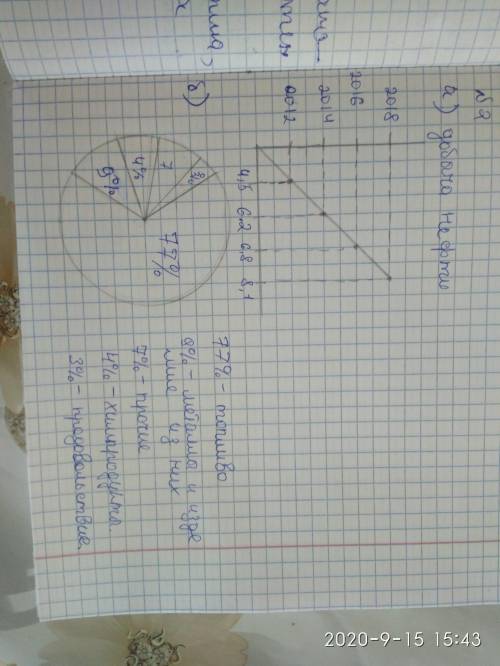 №2
а) добыча нефти
2018
2016
2014
0012
4,5 6.2 6.8 8,1
б)
77%
3%
7
4%
9%
77% - топливо
9% - металлы и изде
лие из них
7% - прочие
4% - химпродукты.
3% - продовольствие
2020-9-15 15:43